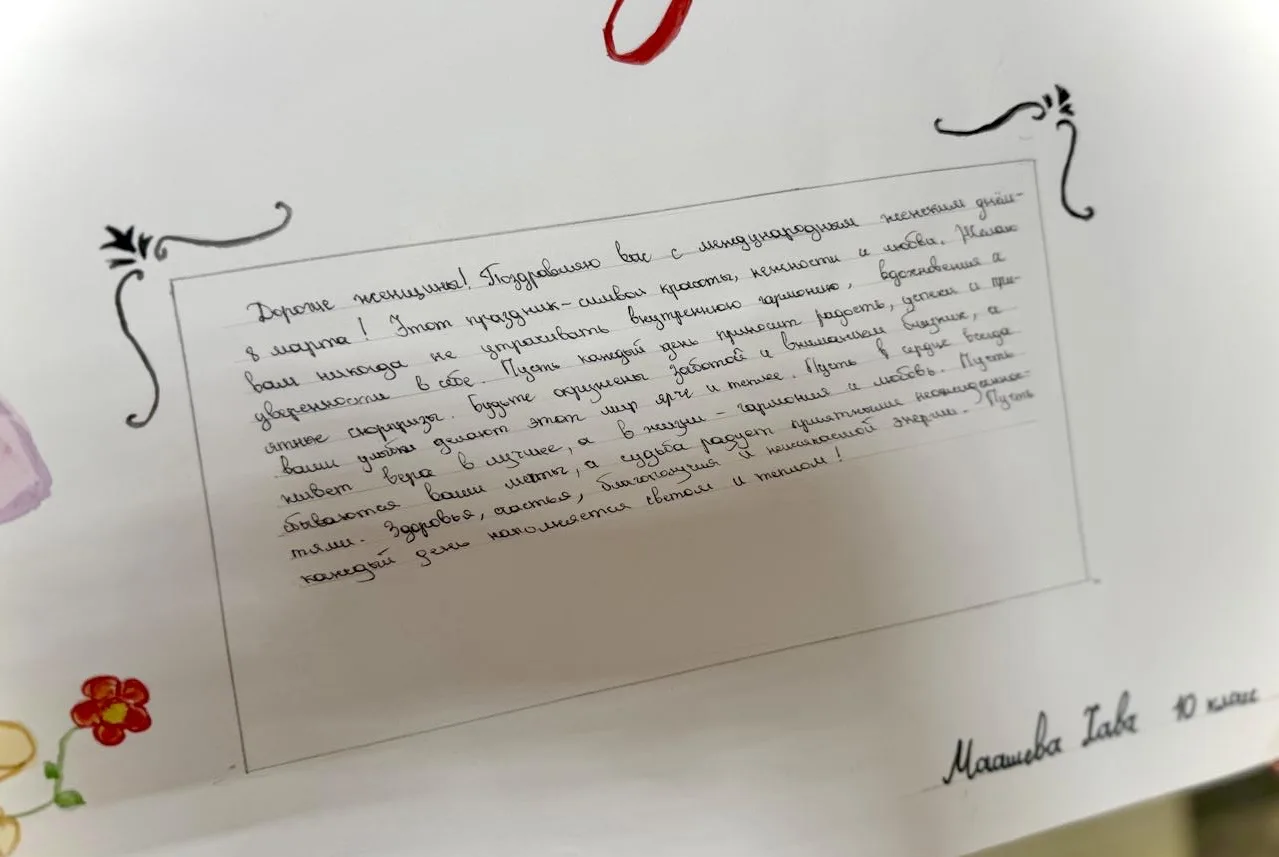 Дорогие женщины! Поздравляю вас с международным женским днём-
8 марта! Этот праздник-символ красоты, нежности и любви. Желаю
вам никогда не утрачивать внутреннюю гармонию, вдохновения и
уверенности в себе. Пусть каждый день приносит радость, успехи и при-
ятные сюрпризы. Будьте окружены заботой и вниманием близких, а
ваши улыбки делают этот мир ярче и теплее. Пусть в сердце всегда
живёт вера в лучшее, а в жизни - гармония и любовь. Пусть
сбываются ваши мечты, а судьба радует приятными неожиданнос-
тями. Здоровья, счастья, благополучия и неиссякаемой энергии. Пусть
каждый день наполняется светом и теплом!
Маашева Хава 10 класс